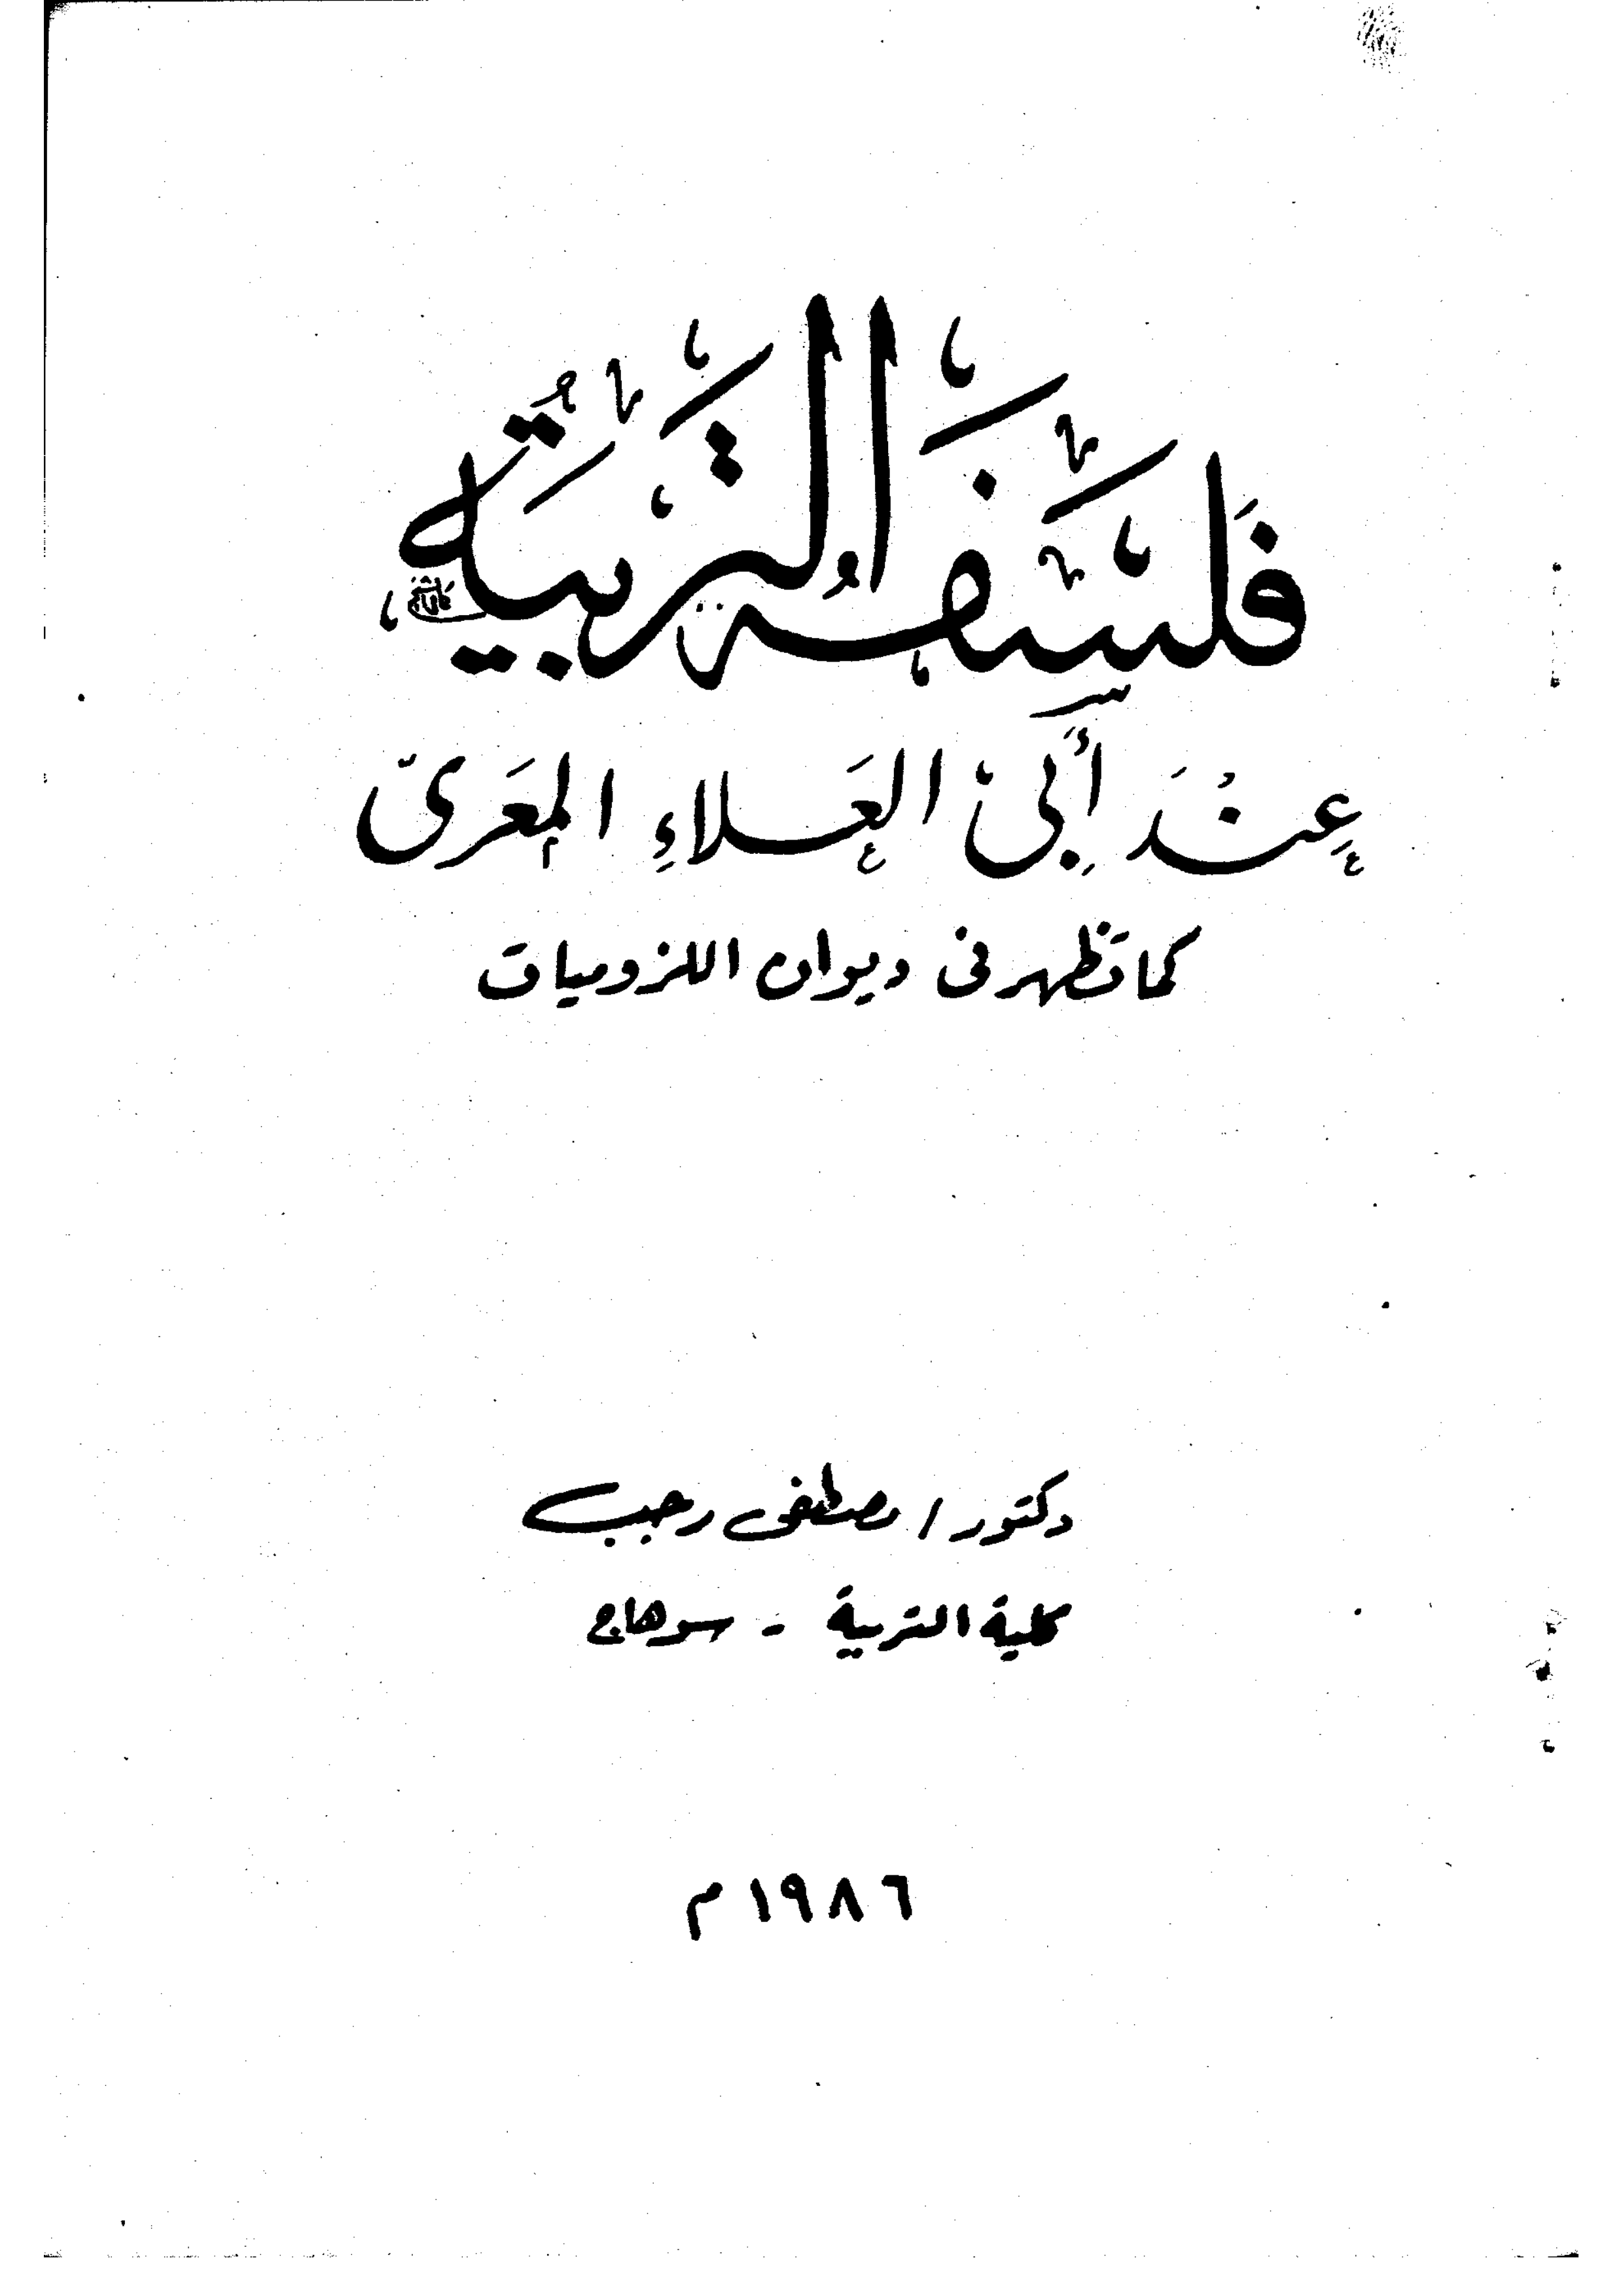 فلسفة التربية
عند أبي العلاء المعري
كما تظهر في ديوان اللزوميات
دكتور / مصطفى رجب
كلية التربية - سوهاج
١٩٨٦ م